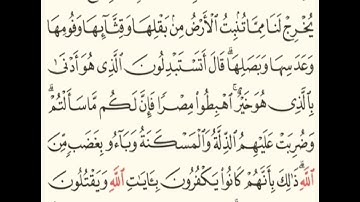 يُخْرِجْ لَنَا مِمَّا تُنۢبِتُ ٱلْأَرْضُ مِنۢ بَقْلِهَا وَقِثَّآئِهَا وَفُومِهَا
وَعَدَسِهَا وَبَصَلِهَا ۖ قَالَ أَتَسْتَبْدِلُونَ ٱلَّذِى هُوَ أَدْنَىٰ
بِٱلَّذِى هُوَ خَيْرٌ ۚ ٱهْبِطُوا۟ مِصْرًا فَإِنَّ لَكُم مَّا سَأَلْتُمْ ۗ
وَضُرِبَتْ عَلَيْهِمُ ٱلذِّلَّةُ وَٱلْمَسْكَنَةُ وَبَآءُو بِغَضَبٍ مِّنَ
ٱللَّهِ ۗ ذَٰلِكَ بِأَنَّهُمْ كَانُوا۟ يَكْفُرُونَ بِـَٔايَـٰتِ ٱللَّهِ وَيَقْتُلُونَ